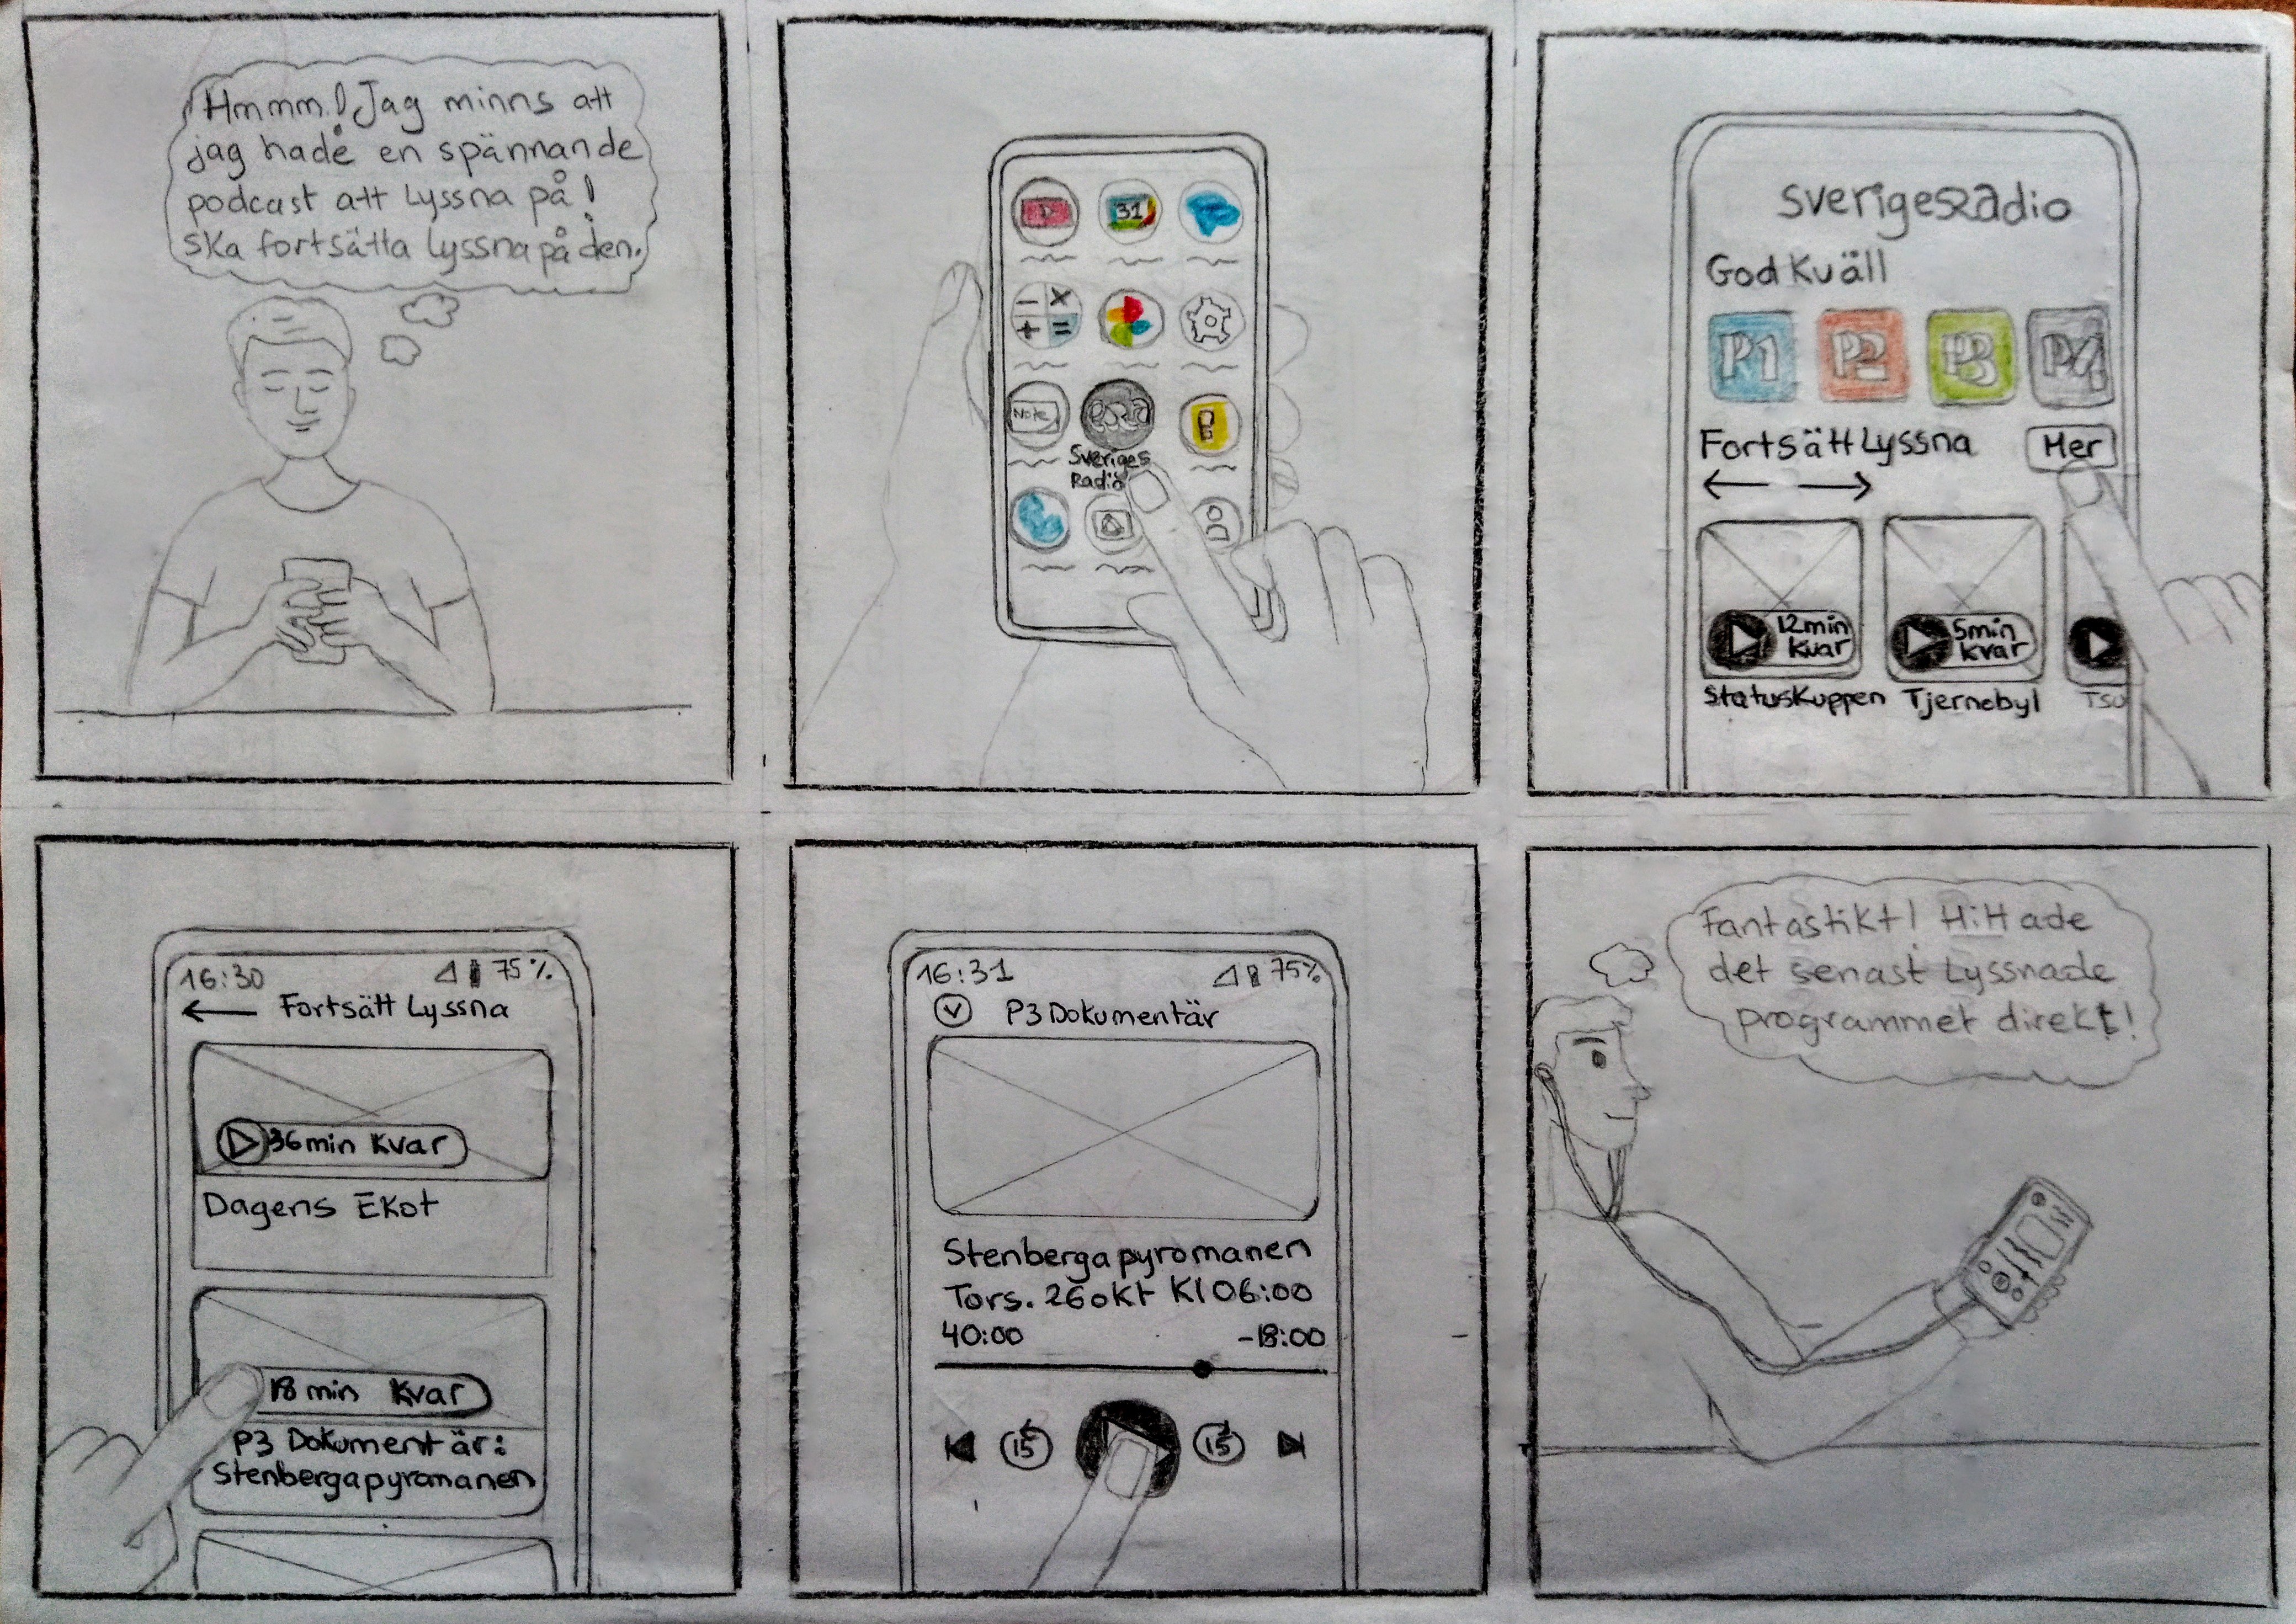 Hmmm! Jag minns att
jag hade en spännande
podcast att Lyssna på!
ska fortsätta lyssna på den.
31
Note
Sveriges
Radio
SverigesRadio
God Kväll
P1 P2 P3 P4
Fortsätt Lyssna Mer
12min
Kvar
5min
Kvar
StatusKuppen Tjernobyl
16:30 75%
Fortsätt Lyssna
36min Kvar
Dagens EKot
18 min Kvar
P3 Dokumentär:
Stenbergapyromanen
16:31 75%
P3 Dokumentär
Stenbergapyromanen
Tors. 26 okt Kl 06:00
40:00 -18:00
15 15
Fantastikt! HiHade
det senast Lyssnade
programmet direkt!